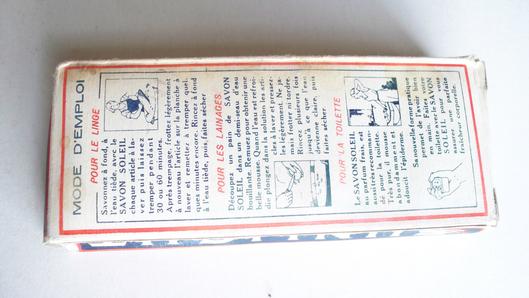 MODE D'EMPLOI
POUR LE LINGE
Savonnez à fond, à
l'eau tiède, avec le
SAVON SOLEIL
chaque article à la-
ver puis laissez
tremper pendant
30 ou 60 minutes.
Après trempage, frottez légèrement
à nouveau l'article sur la planche à
laver et remettez à tremper quel-
ques minutes encore. Rincez à fond
à l'eau tiède, puis faites sécher
POUR LES LAINAGES
Découpez un pain de SAVON
SOLEIL dans un demi-seau d'eau
bouillante. Remuez pour obtenir une
belle mousse. Quand l'eau est refroi-
die plongez dans la solution les arti-
cles à laver et pressez-
les légèrement. Ne ja-
mais frotter ni tordre.
Rincez plusieurs fois
jusqu'à ce que l'eau
devienne claire, puis
faites sécher.
POUR LA TOILETTE
Le SAVON SOLEIL
au parfum frais, est
aussi très recomman-
dé pour la toilette.
Très pur, il mousse
abondamment et
adoucit l'épiderme.
Sa nouvelle forme pratique
permet de l'avoir bien
en main. Faites votre
toilette avec le SAVON
SOLEIL pour vous
assurer une parfaite
fraîcheur corporelle.